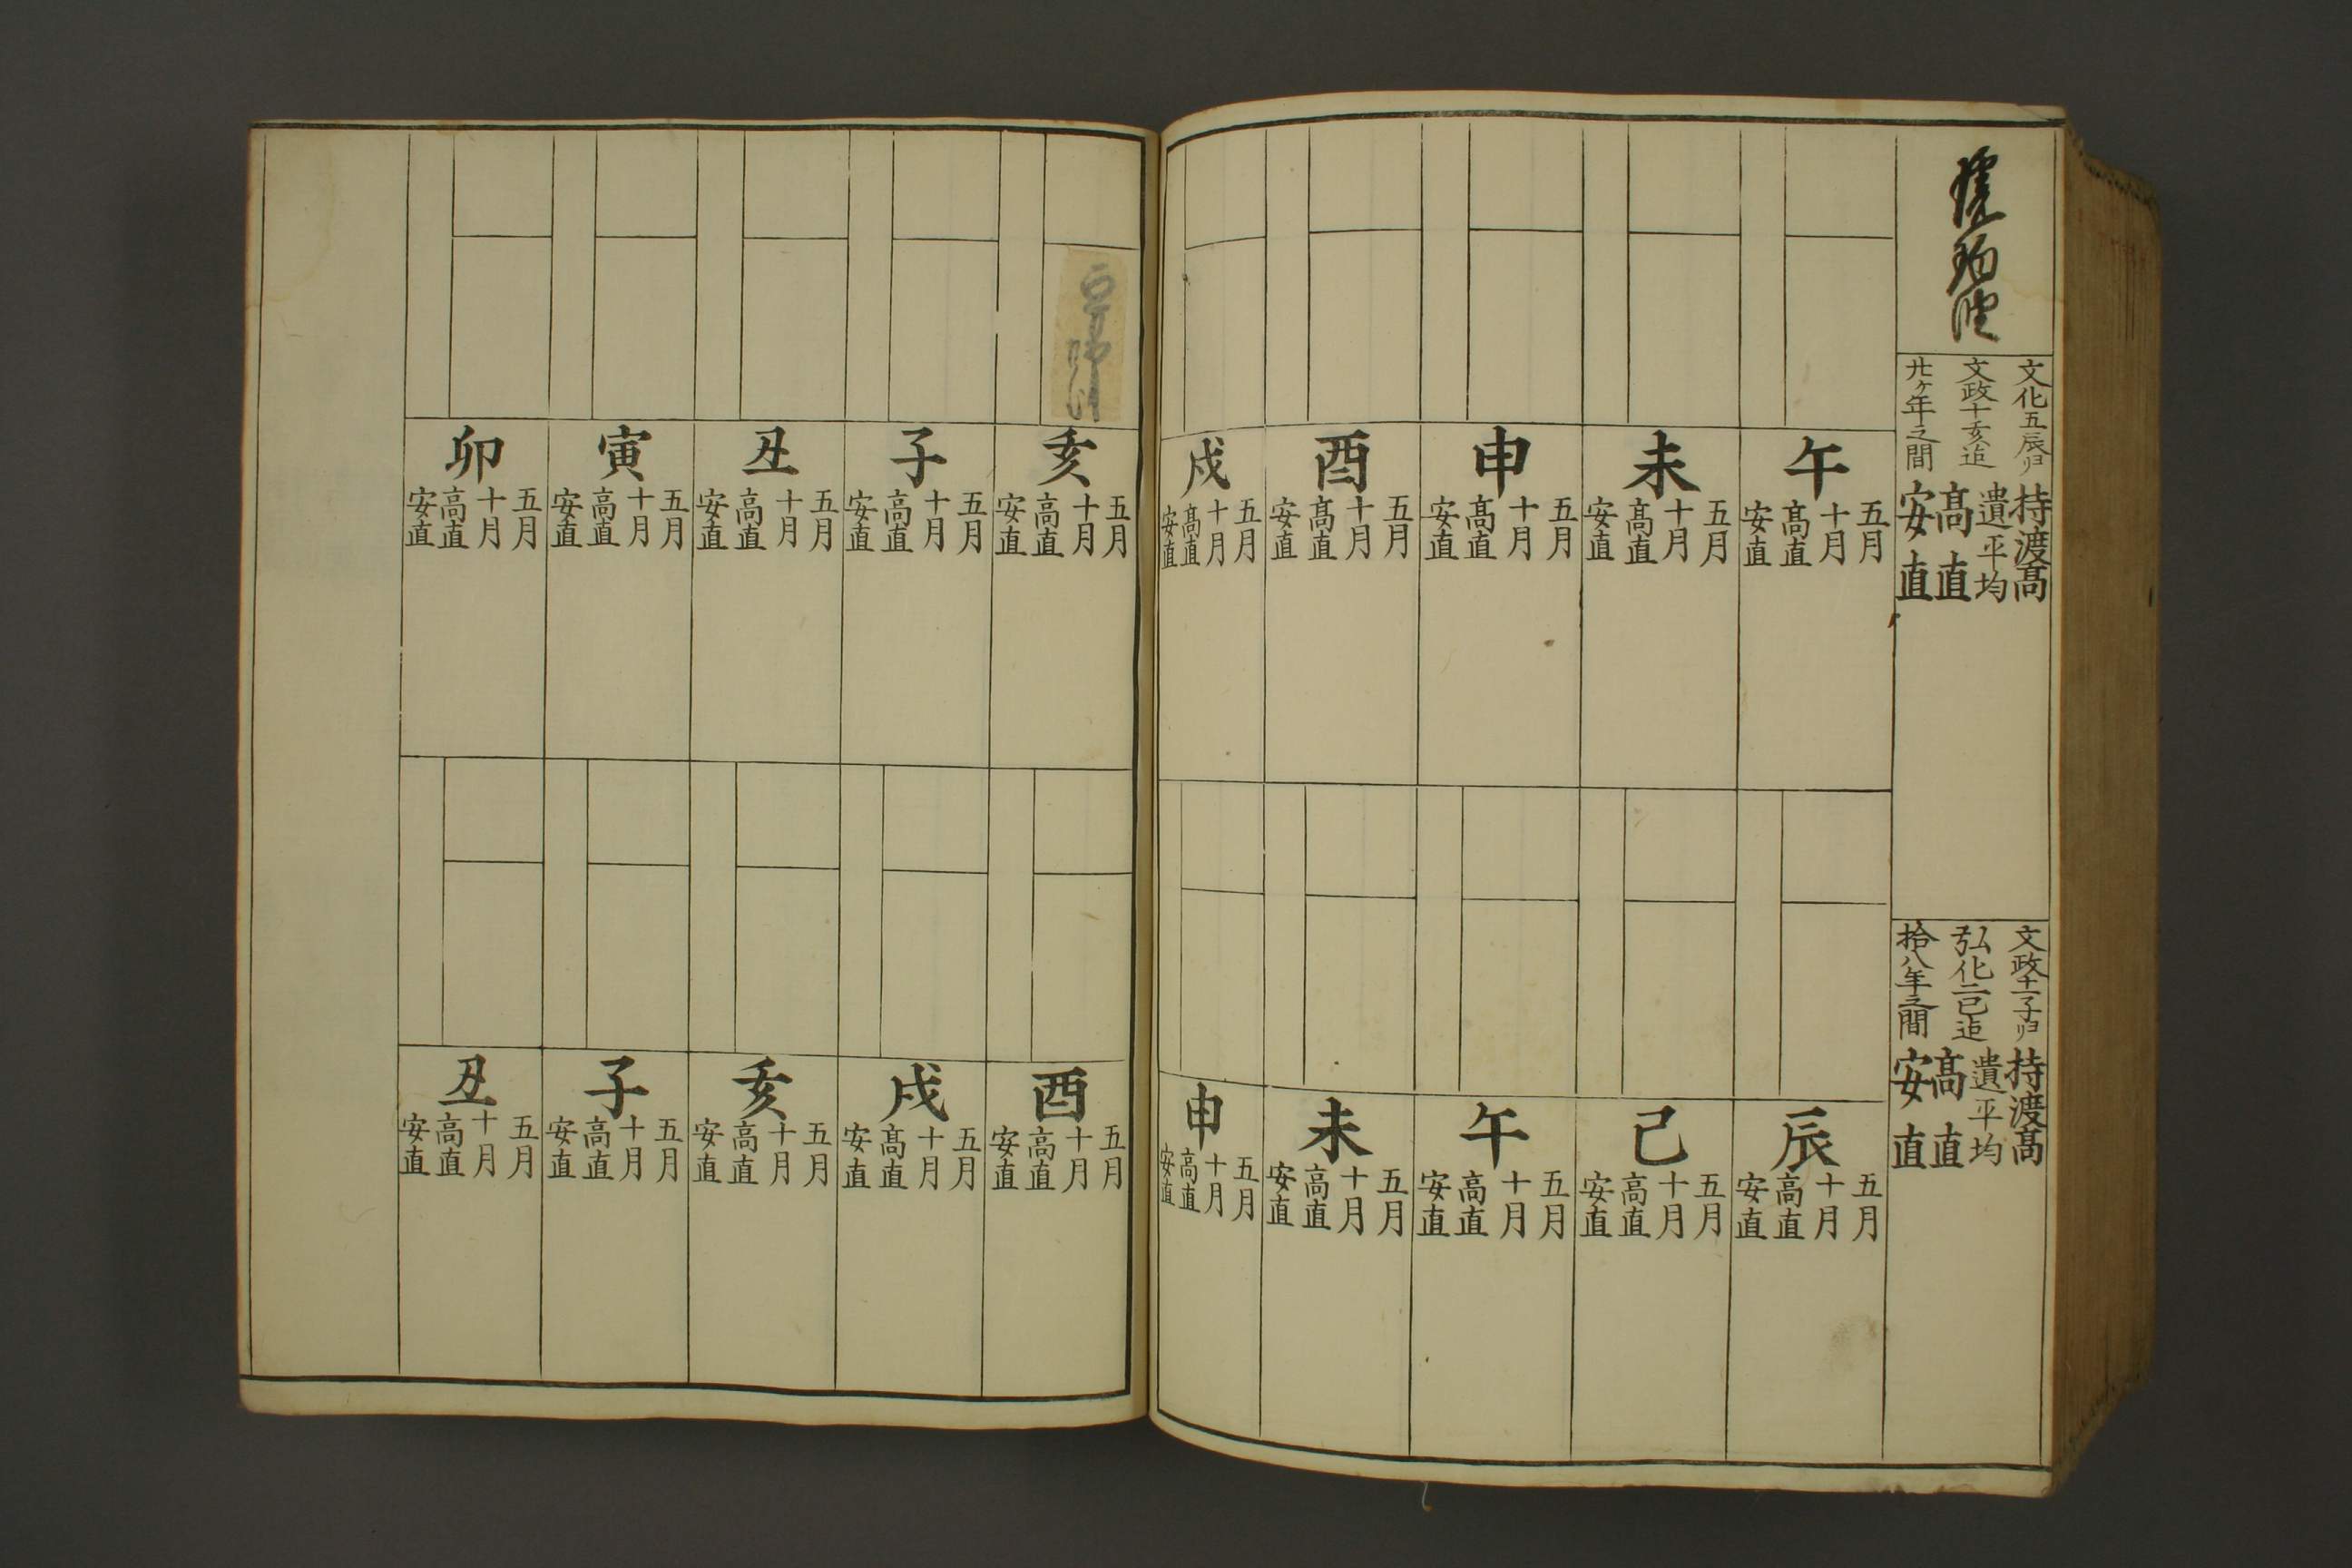 琥珀油
文化五辰ゟ
文政十亥迄
廿ヶ年之間
持渡高
遣平均
高直
安直
文政十一子ゟ
弘化二巳迄
拾八年之間
持渡高
遣平均
高直
安直
午
五月
十月
高直
安直
未
五月
十月
高直
安直
申
五月
十月
高直
安直
酉
五月
十月
高直
安直
戌
五月
十月
高直
安直
辰
五月
十月
高直
安直
巳
五月
十月
高直
安直
午
五月
十月
高直
安直
未
五月
十月
高直
安直
申
五月
十月
高直
安直
亥
五月
十月
高直
安直
子
五月
十月
高直
安直
丑
五月
十月
高直
安直
寅
五月
十月
高直
安直
卯
五月
十月
高直
安直
酉
五月
十月
高直
安直
戌
五月
十月
高直
安直
亥
五月
十月
高直
安直
子
五月
十月
高直
安直
丑
五月
十月
高直
安直